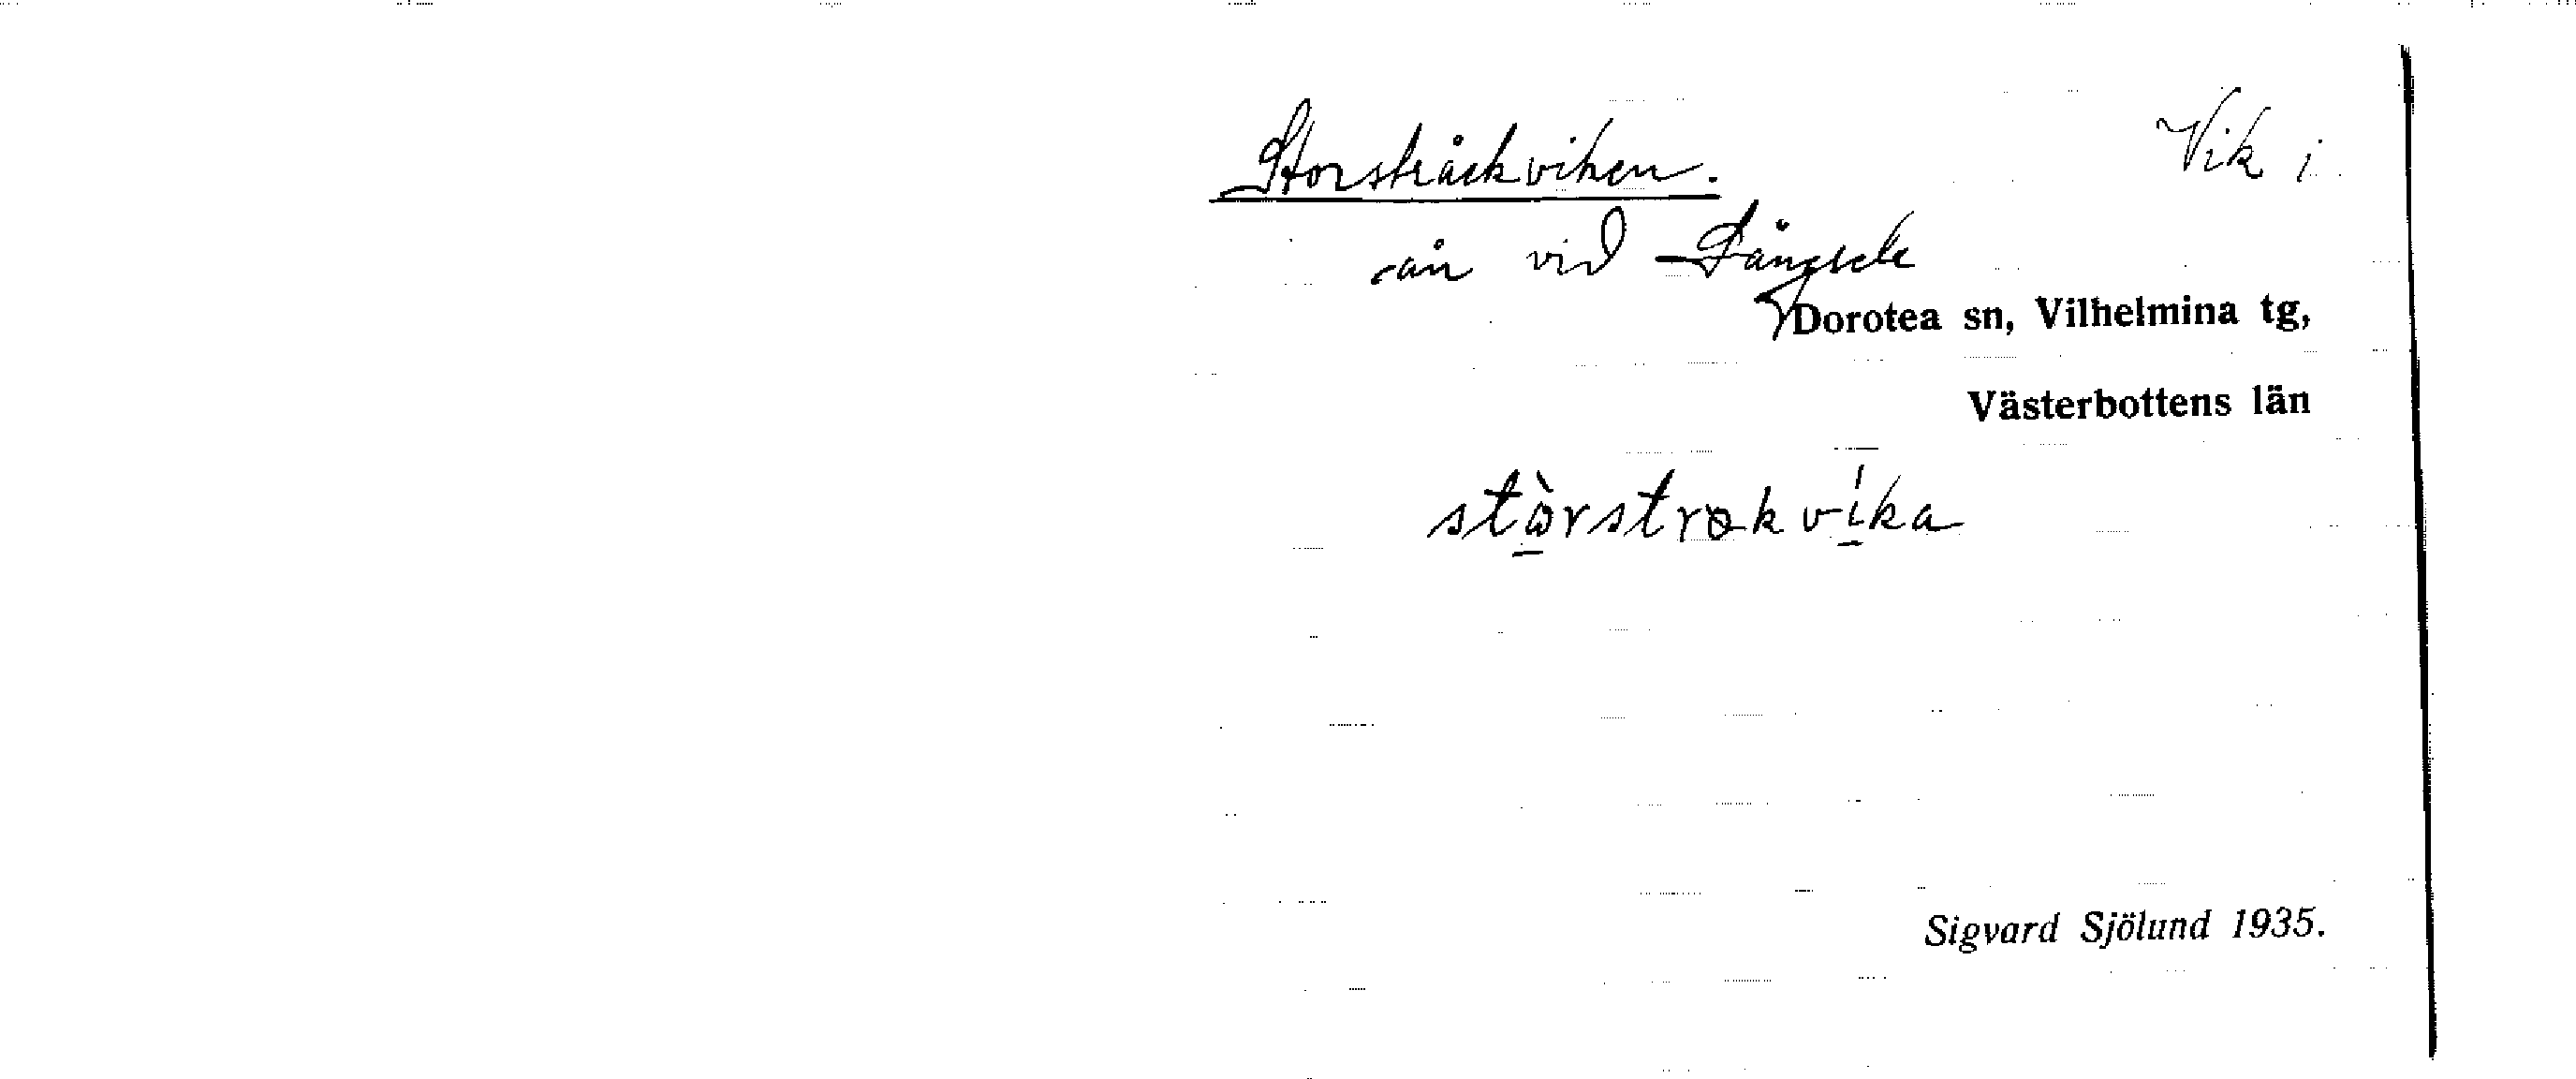 Storstråckviken. Vik i
ån vid Långsele
Dorotea sn, Vilhelmina tg,
Västerbottens län
stòrstrokvíka
Sigvard Sjölund 1935.